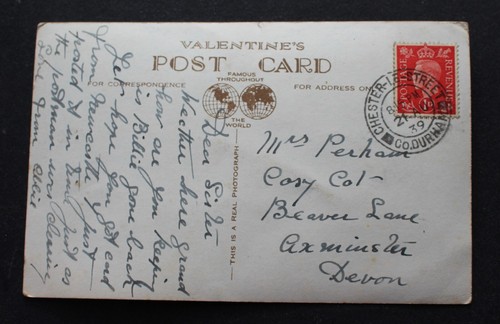 VALENTINE'S
POST CARD
FAMOUS
THROUGHOUT
FOR CORRESPONDENCE
FOR ADDRESS ON
THE
WORLD
THIS IS A REAL PHOTOGRAPH
POSTAGE
REVENUE
CHESTER-LE-STREET
CO. DURHAM
39
Mrs Perham
Cosy Cot
Beaver Lane
Axminster
Devon
Dear Sister
weather here grand
how are you keeping
is Billie gone back
Yes hope you got card
from Newcastle Just
posted it in time Just as
the postman was clearing
Love from